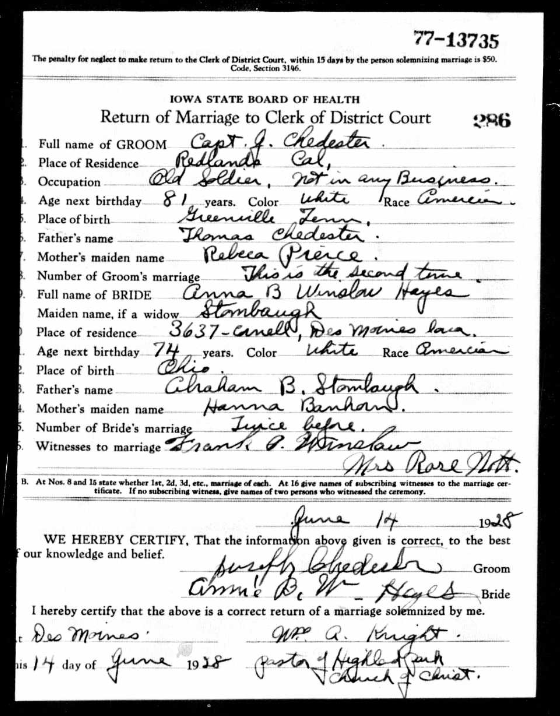 77-13735
The penalty for neglect to make return to the Clerk of District Court, within 15 days by the person solemnizing marriage is $50.
Code, Section 3146.
IOWA STATE BOARD OF HEALTH
Return of Marriage to Clerk of District Court 286
Full name of GROOM Capt. J. Chedester.
Place of Residence Redlands Cal,
Occupation Old Soldier, Not in any Business.
Age next birthday 81 years. Color White Race Amercian.
Place of birth Greenville Tenn,
Father's name Thomas Chedester.
Mother's maiden name Rebeca Pierce.
Number of Groom's marriage This is the second time.
Full name of BRIDE Anna B Winslow Hayes
Maiden name, if a widow Stombaugh
Place of residence 3637- Des Moines Iowa.
Age next birthday 74 years. Color White Race Amercian
Place of birth Ohio.
Father's name Abraham B. Stombaugh.
Mother's maiden name Hanna Banhorn.
Number of Bride's marriage Twice before.
Witnesses to marriage Frank A. Winslow
Mrs Rose Nott.
B. At Nos. 8 and 15 state whether 1st, 2d, 3d, etc., marriage of each. At 16 give names of subscribing witnesses to the marriage cer-
tificate. If no subscribing witness, give names of two persons who witnessed the ceremony.
June 14 1928
WE HEREBY CERTIFY, That the information above given is correct, to the best
f our knowledge and belief.
Joseph Chedester Groom
Annie B. W- Hayes Bride
I hereby certify that the above is a correct return of a marriage solemnized by me.
t Des Moines. Wm A. Knight.
his 14 day of June 1928 pastor of Highland Park
Church of Christ.